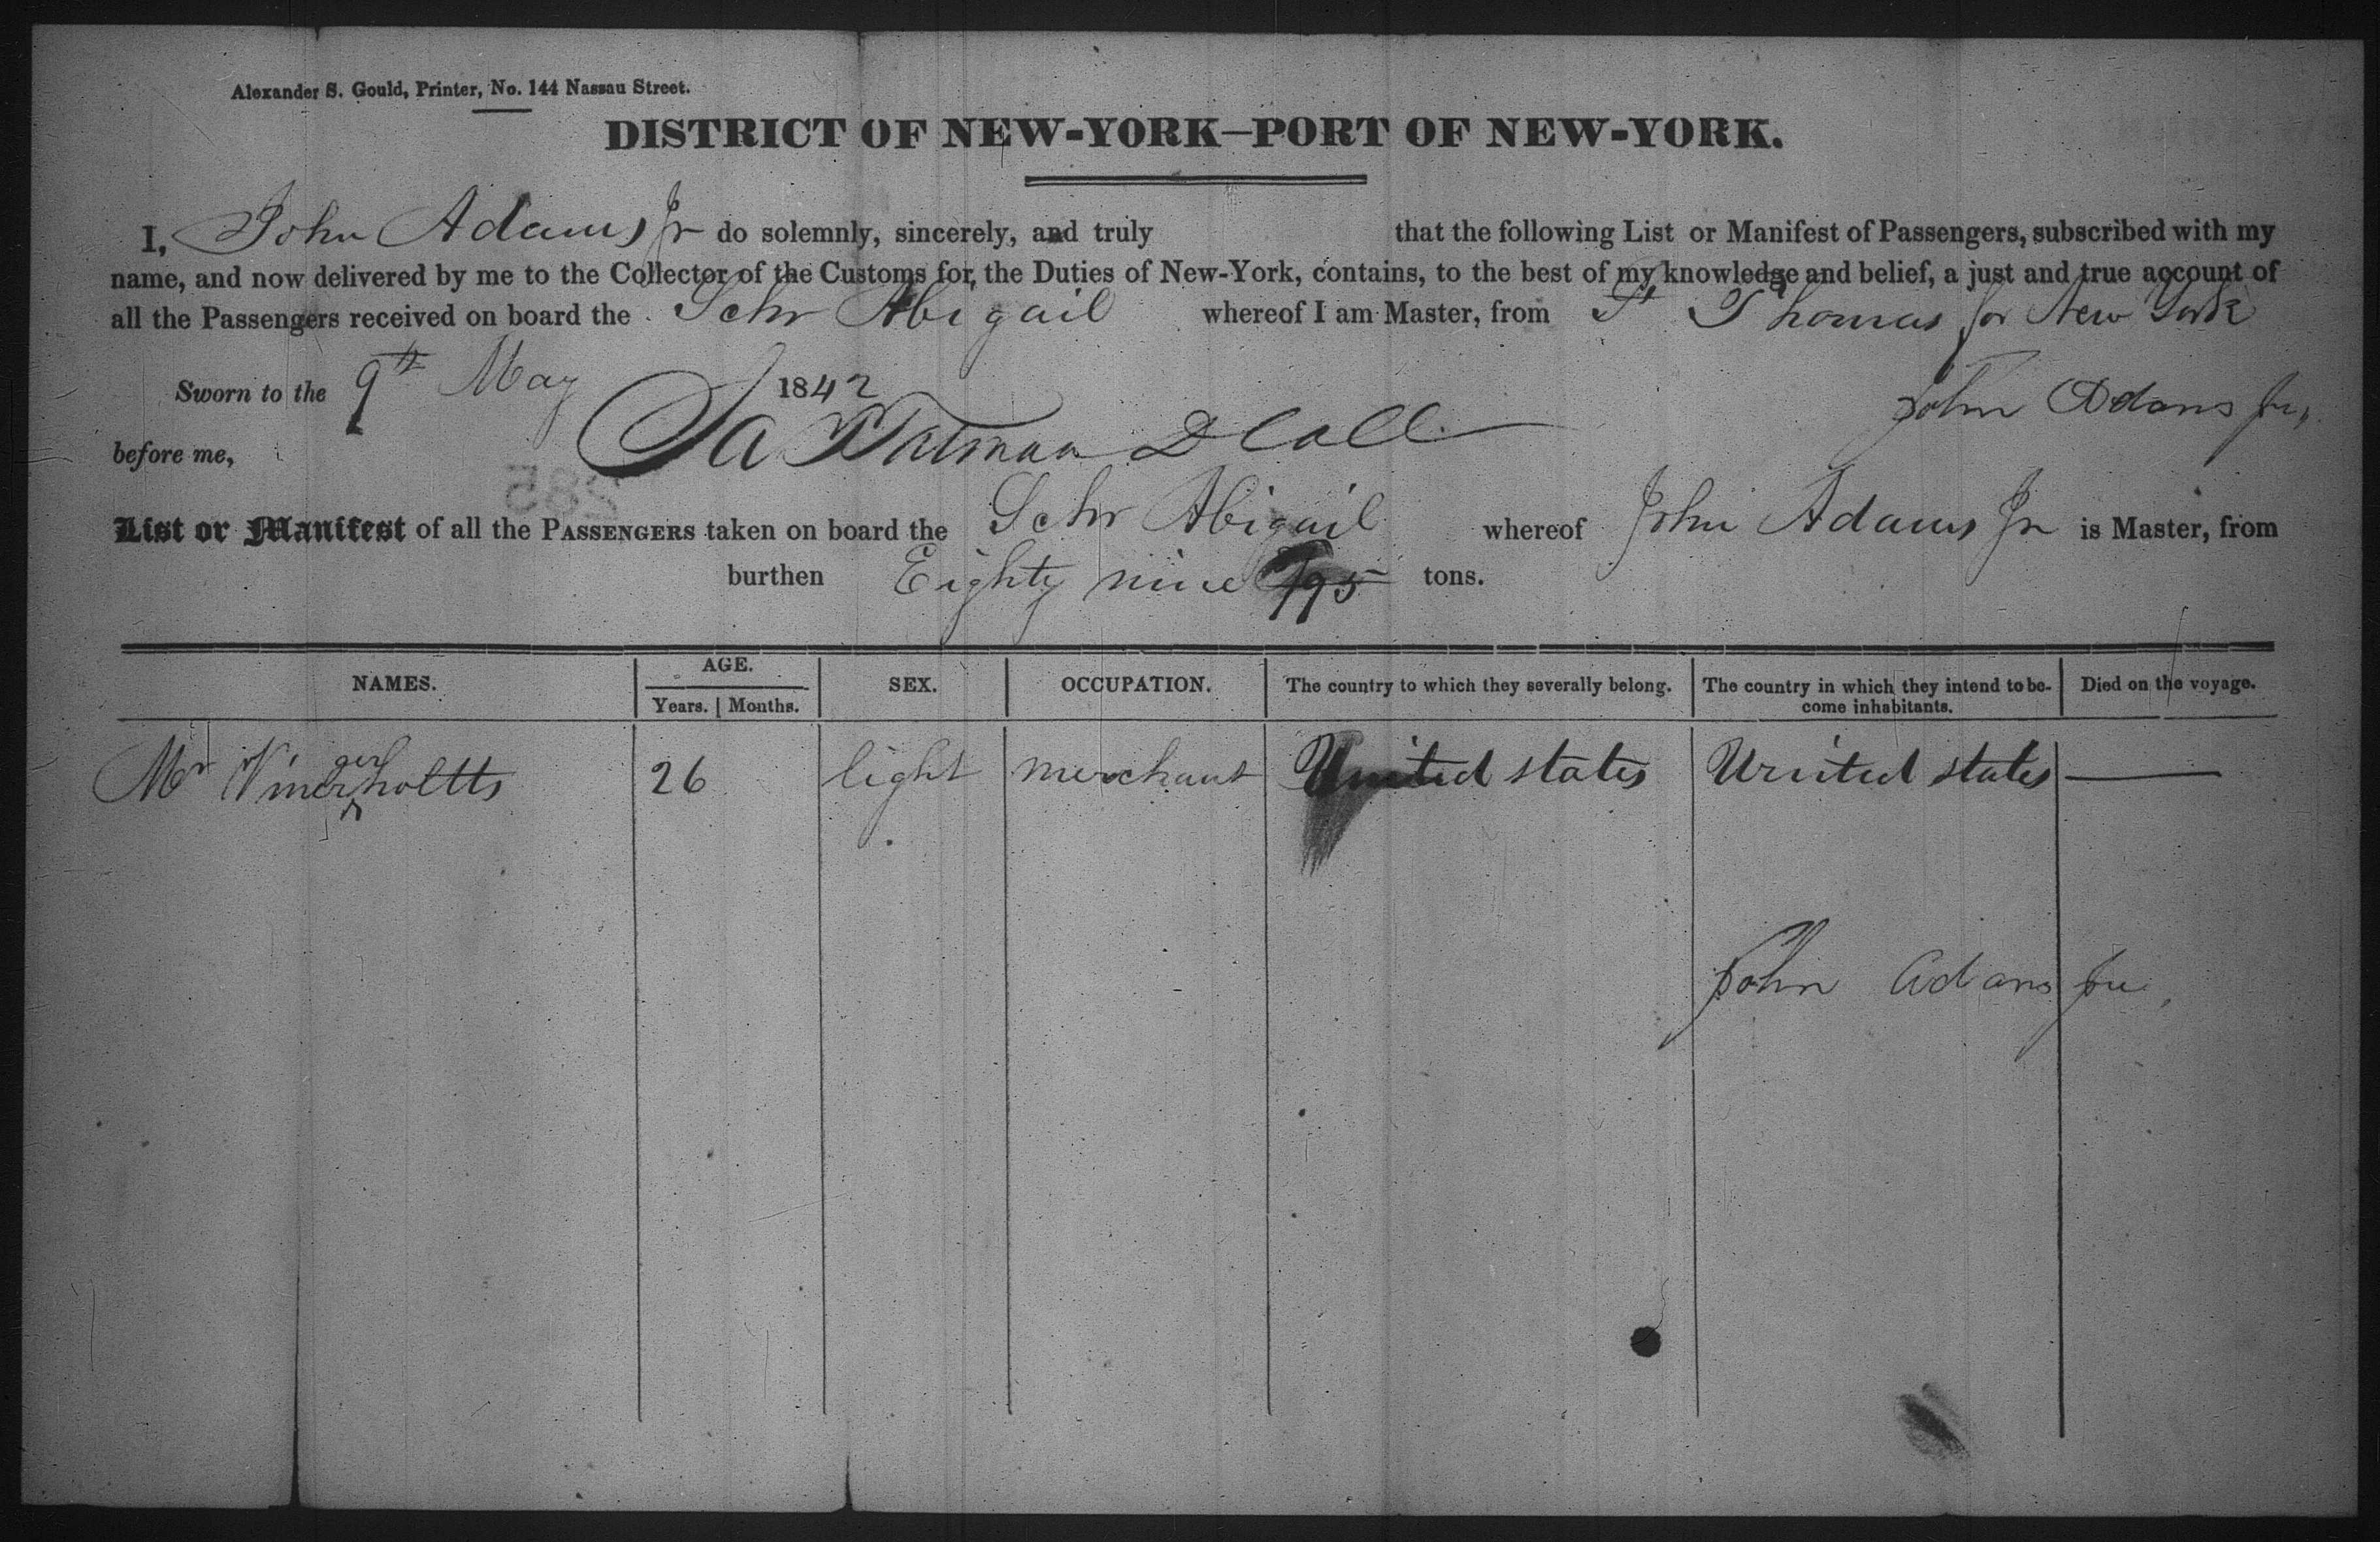 Alexander S. Gould, Printer, No. 144 Nassau Street.
DISTRICT OF NEW-YORK—PORT OF NEW-YORK.
I, John Adams Jr do solemnly, sincerely, and truly that the following List or Manifest of Passengers, subscribed with my
name, and now delivered by me to the Collector of the Customs for, the Duties of New-York, contains, to the best of my knowledge and belief, a just and true account of
all the Passengers received on board the Schr Abigail whereof I am Master, from St Thomas for New York
Sworn to the 9th May 1842 John Adams Jr
before me, D Coll
285
List or Manifest of all the PASSENGERS taken on board the Schr Abigail whereof John Adams Jr is Master, from
burthen Eighty nine /95 tons.
NAMES. AGE. SEX. OCCUPATION. The country to which they severally belong. The country in which they intend to be- Died on the voyage.
Years. Months. come inhabitants.
Mr 26 light merchant United states United states —
John Adams Jr